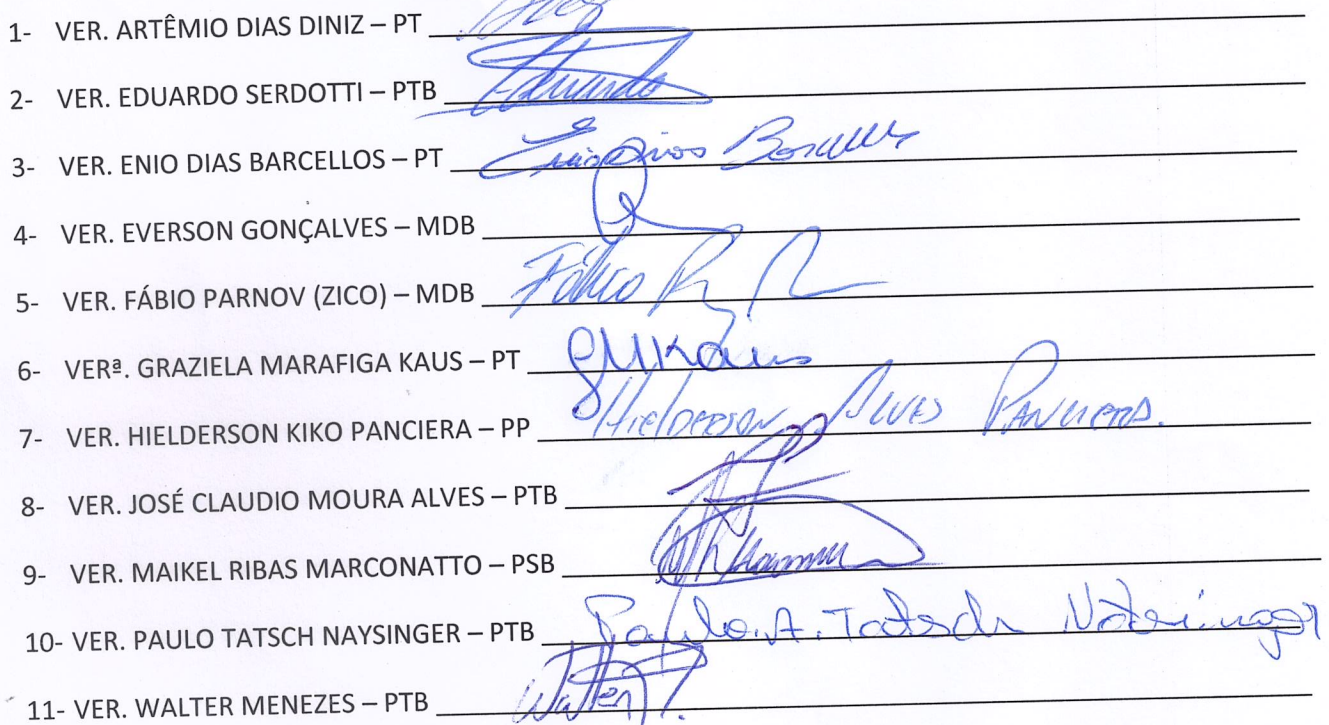 1- VER. ARTÊMIO DIAS DINIZ – PT
2- VER. EDUARDO SERDOTTI – PTB Eduardo
3- VER. ENIO DIAS BARCELLOS – PT Enio Dias Barcellos
4- VER. EVERSON GONÇALVES – MDB
5- VER. FÁBIO PARNOV (ZICO) – MDB Fábio
6- VERª. GRAZIELA MARAFIGA KAUS – PT GMKaus
7- VER. HIELDERSON KIKO PANCIERA – PP HIELDERSON ALVES PANCIERA.
8- VER. JOSÉ CLAUDIO MOURA ALVES – PTB
9- VER. MAIKEL RIBAS MARCONATTO – PSB
10- VER. PAULO TATSCH NAYSINGER – PTB Paulo. A. Tatsch
11- VER. WALTER MENEZES – PTB Walter